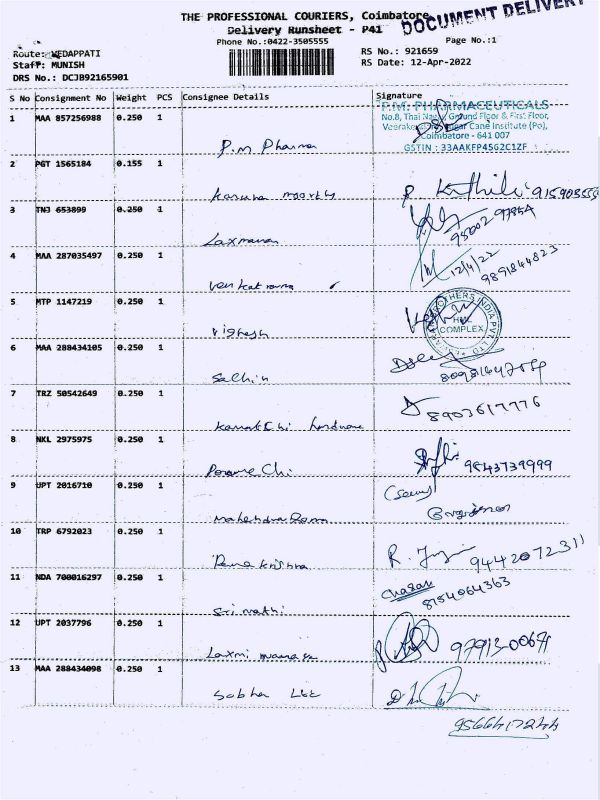 THE PROFESSIONAL COURIERS, Coimbatore
DOCUMENT DELIVERY
Delivery Runsheet - P41
Phone No.:0422-3505555
Page No.:1
Route: VEDAPPATI
RS No.: 921659
Staff: MUNISH
RS Date: 12-Apr-2022
DRS No.: DCJB92165901
S No Consignment No Weight PCS Consignee Details Signature
P.M. PHARMACEUTICALS
No.8, Thai Nagar, Ground Floor & First Floor,
Cane Institute (Po),
Coimbatore - 641 007
GSTIN : 33AAKFP45G2C1ZF
1 MAA 857256988 0.250 1
P.M Pharma
2 PGT 1565184 0.155 1
Karuna moorthy
3 TNJ 653899 0.250 1
Laxmanan
95002 97854
4 MAA 287035497 0.250 1
12/4/22
9891844823
Venkatrama
5 MTP 1147219 0.250 1
BROTHERS INDIA PVT LTD
COMPLEX
Vignesh
6 MAA 288434105 0.250 1
Sachin
7 TRZ 50542649 0.250 1
8903617776
Kamatchi hardware
8 NKL 2975975 0.250 1
9843739999
9 UPT 2016710 0.250 1
Mahendra
10 TRP 6792023 0.250 1
9442072311
Rama Krishna
11 NDA 700016297 0.250 1
8154064363
Srimathi
12 UPT 2037796 0.250 1
97913-00671
Laxmi
13 MAA 288434098 0.250 1
Sobha Ltd
9566417244